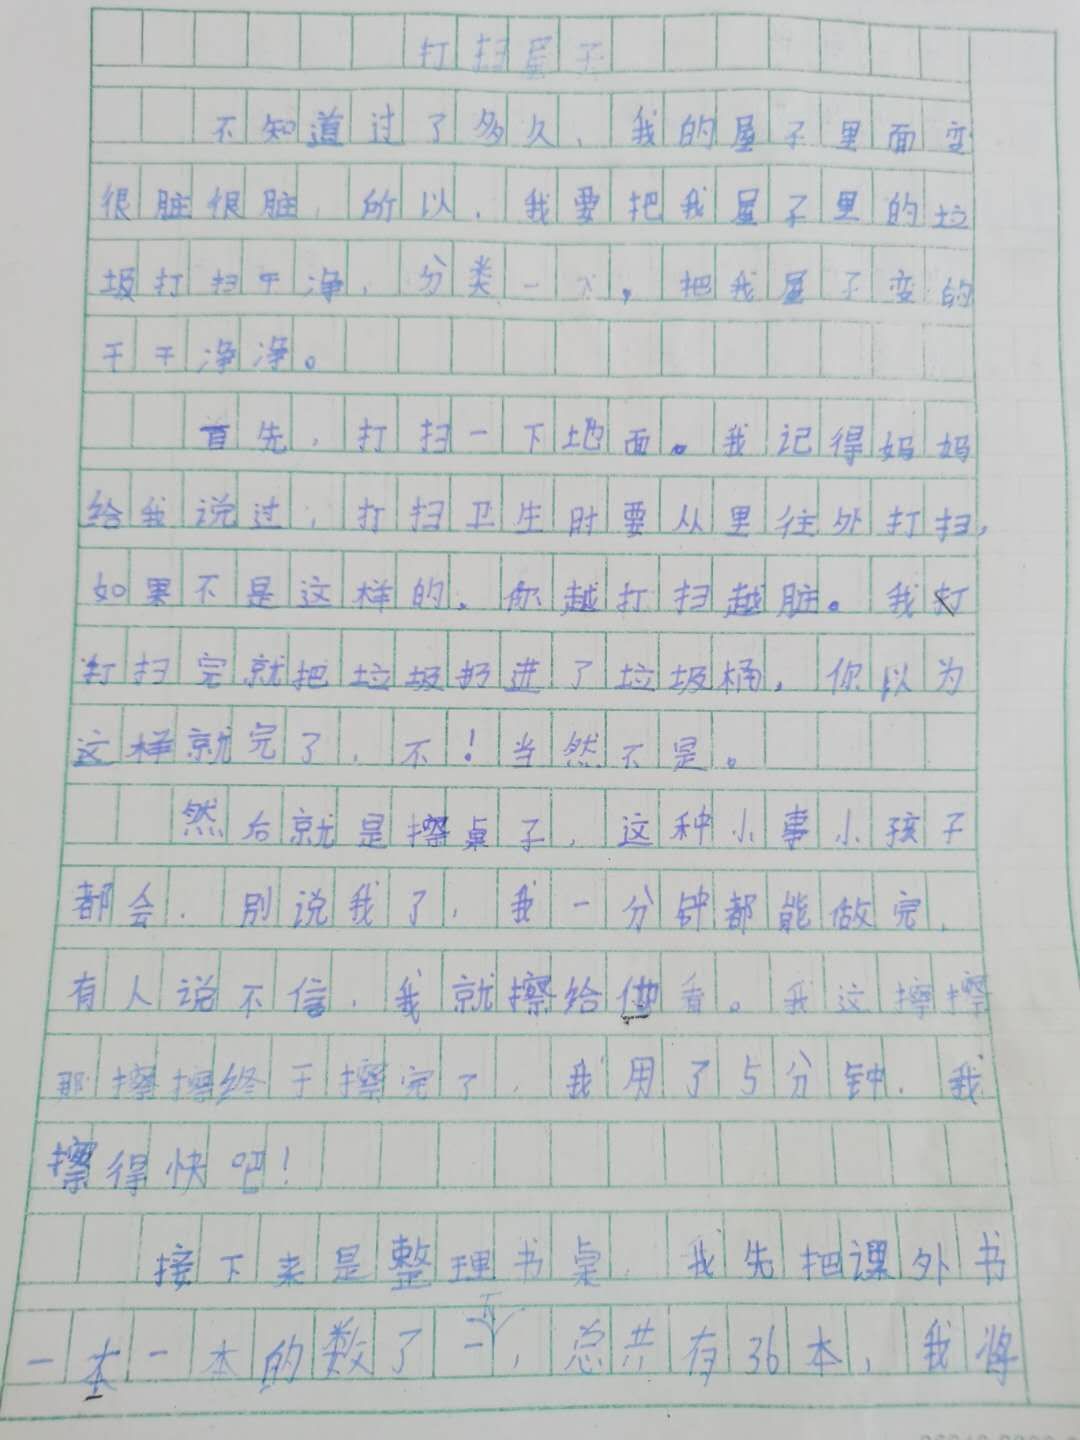 打扫屋子
不知道过了多久，我的屋子里面变
很脏很脏，所以，我要把我屋子里的垃
圾打扫干净，分类一下，把我屋子变的
干干净净。
首先，打扫一下地面。我记得妈妈
给我说过，打扫卫生时要从里往外打扫，
如果不是这样的，你越打扫越脏。我打
打扫完就把垃圾扔进了垃圾桶，你以为
这样就完了，不！当然不是。
然后就是擦桌子，这种小事小孩子
都会，别说我了，我一分钟都能做完，
有人说不信，我就擦给他看。我这擦擦
那擦擦终于擦完了，我用了5分钟，我
擦得快吧！
接下来是整理书桌，我先把课外书
一本一本的数了一下，总共有36本，我将